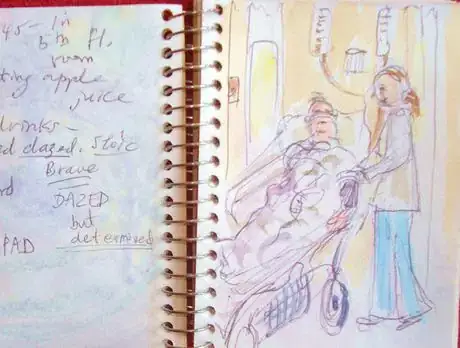 45 - In
5th Fl.
room
apple
juice
drinks -
dazed. Stoic
Brave
DAZED
but
determined
PAD